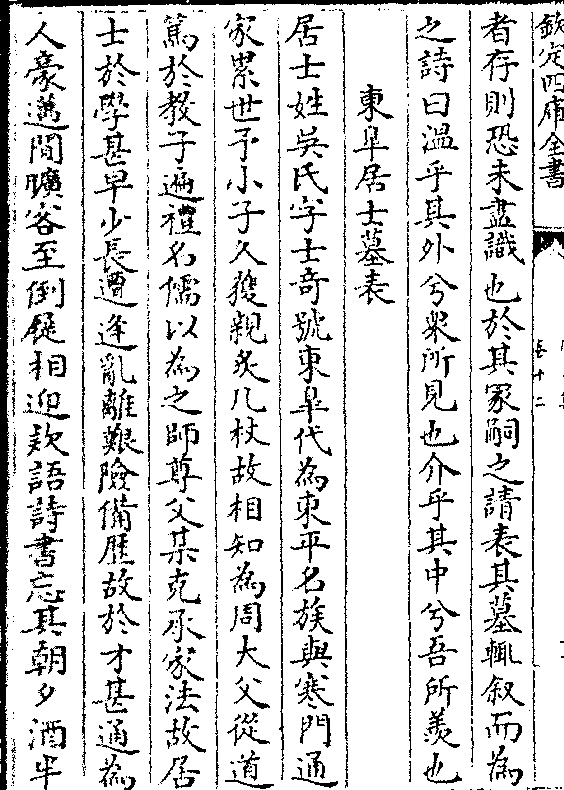 欽定四庫全書
卷十二
者存則恐未盡識也於其冢嗣之請表其墓輒叙而為
之詩曰温乎其外兮衆所見也介乎其中兮吾所羨也
東阜居士墓表
居士姓吳氏字士奇號東臯代為東平名族與寒門通
家累世予小子久獲親炙几杖故相知為周大父從道
篤於教子遍禮名儒以為之師尊父某克承家法故居
士於學甚早少長遭逢亂離艱險備歴故於才甚通為
人豪邁閒曠客至倒屣相迎欵語詩書忘其朝夕酒半